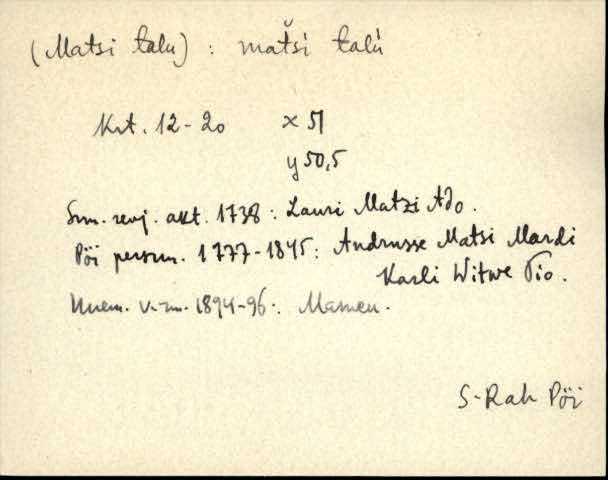 (Matsi talu) : matši talù
Krt. 12-20 x 51
y 50,5
Srn. revj. akt. 1738: Lauri Matzi Ado.
Pöi persrn. 1777-1845: Andrusse Matsi Mardi
Karli Witwe Tio.
v.-rn. 1894-96:
S-Rah Pöi